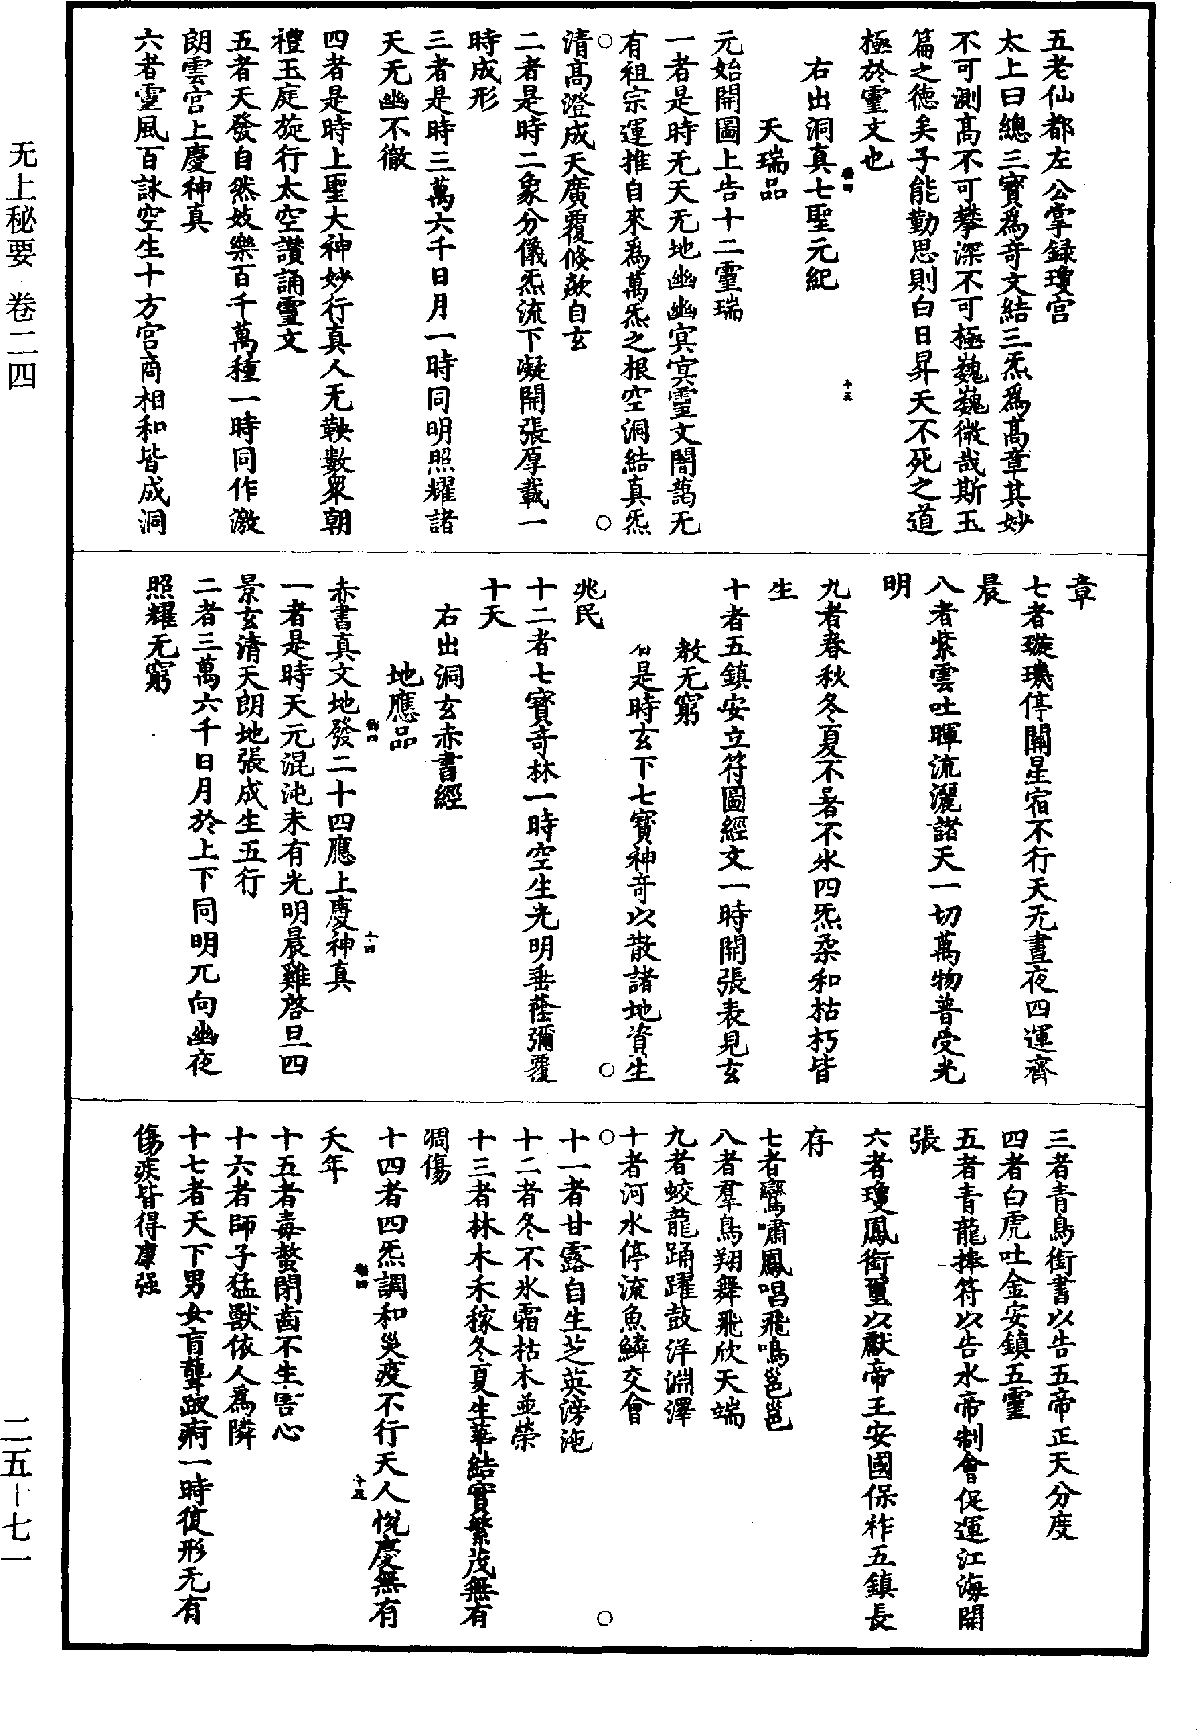 无上秘要　卷二四
五老仙都左公掌録瓊宫
太上曰總三寶爲奇文結三炁爲髙章其妙
不可測髙不可攀深不可極巍巍微哉斯玉
篇之德矣子能勤思則白日昇天不死之道
極於靈文也
右出洞真七聖元紀
天瑞品
元始開圖上告十二靈瑞
一者是時无天无地幽幽冥冥靈文闇藹无
有祖宗運推自來爲萬炁之根空洞結真炁
清髙澄成天廣覆倏歘自玄
二者是時二象分儀炁流下凝開張厚載一
時成形
三者是時三萬六千日月一時同明照耀諸
天无幽不徹
四者是時上聖大神妙行真人无鞅數衆朝
禮玉庭旋行太空讃誦靈文
五者天發自然妓樂百千萬種一時同作激
朗雲宫上慶神真
六者靈風百詠空生十方宫商相和皆成洞
章
七者璇璣停關星宿不行天无晝夜四運齊
晨
八者紫雲吐暉流灑諸天一切萬物普受光
明
九者春秋冬夏不暑不氷四炁柔和枯朽皆
生
十者五鎮安立符圖經文一時開張表見玄
教无窮
是時玄下七寶神奇以散諸地資生
兆民
十二者七寶奇林一時空生光明垂蔭彌覆
十天
右出洞玄赤書經
地應品
赤書真文地發二十四應上慶神真
一者是時天元混沌未有光明晨雞啓旦四
景玄清天朗地張成生五行
二者三萬六千日月於上下同明兀向幽夜
照耀无窮
三者青鳥銜書以告五帝正天分度
四者白虎吐金安鎮五靈
五者青龍捧符以告水帝制會促運江海開
張
六者瓊鳳銜璽以獻帝王安國保祚五鎮長
存
七者鸞嘯鳳唱飛鳴邕邕
八者羣鳥翔舞飛欣天端
九者蛟龍踊躍鼓洋淵澤
十者河水停流魚鱗交會
十一者甘露自生芝英滂沲
十二者冬不氷霜枯木並榮
十三者林木禾稼冬夏生華結實繁茂無有
凋傷
十四者四炁調和災疫不行天人悅慶無有
夭年
十五者毒螫閉齒不生害心
十六者師子猛獸依人爲隣
十七者天下男女盲聾跛痾一時復形无有
傷疾皆得康强
二五－七一